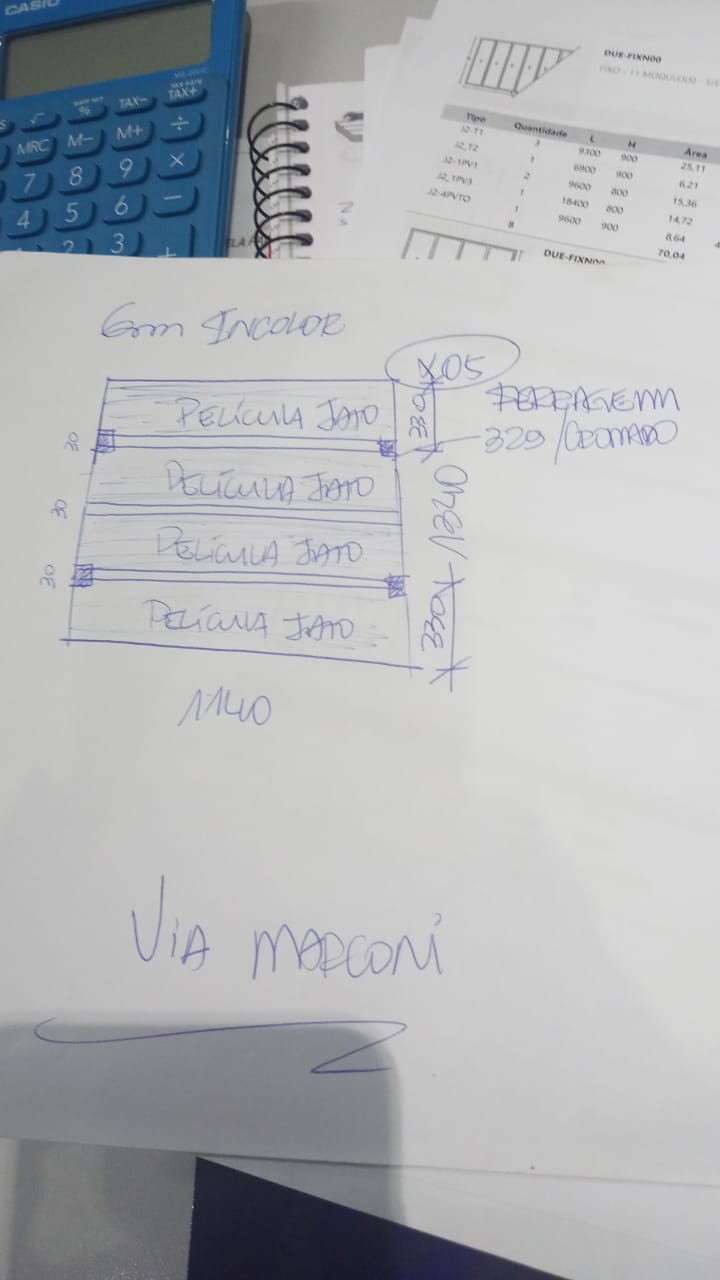 CASIO
MRC M- M+ ÷
7 8 9 ×
4 5 6 −
2 3 +
% TAX- TAX+
DUE-FIXN00
FIXO - 11 MODULO(S) - SIS
Tipo Quantidade L H Área
J2-T1 3 9300 900 25,11
J2_T2 1 6900 900 6,21
J2-1PV1 2 9600 800 15,36
J2_1PV3 1 18400 800 14,72
J2-4PVTO 1 9600 900 8,64
8 70,04
DUE-FIXN00
6mm INCOLOR
X05
PELÍCULA JATO
330
FERRAGEM
329/CROMADO
30
PELÍCULA JATO
1340
30
PELÍCULA JATO
30
PELÍCULA JATO
330
1140
VIA MARCONI